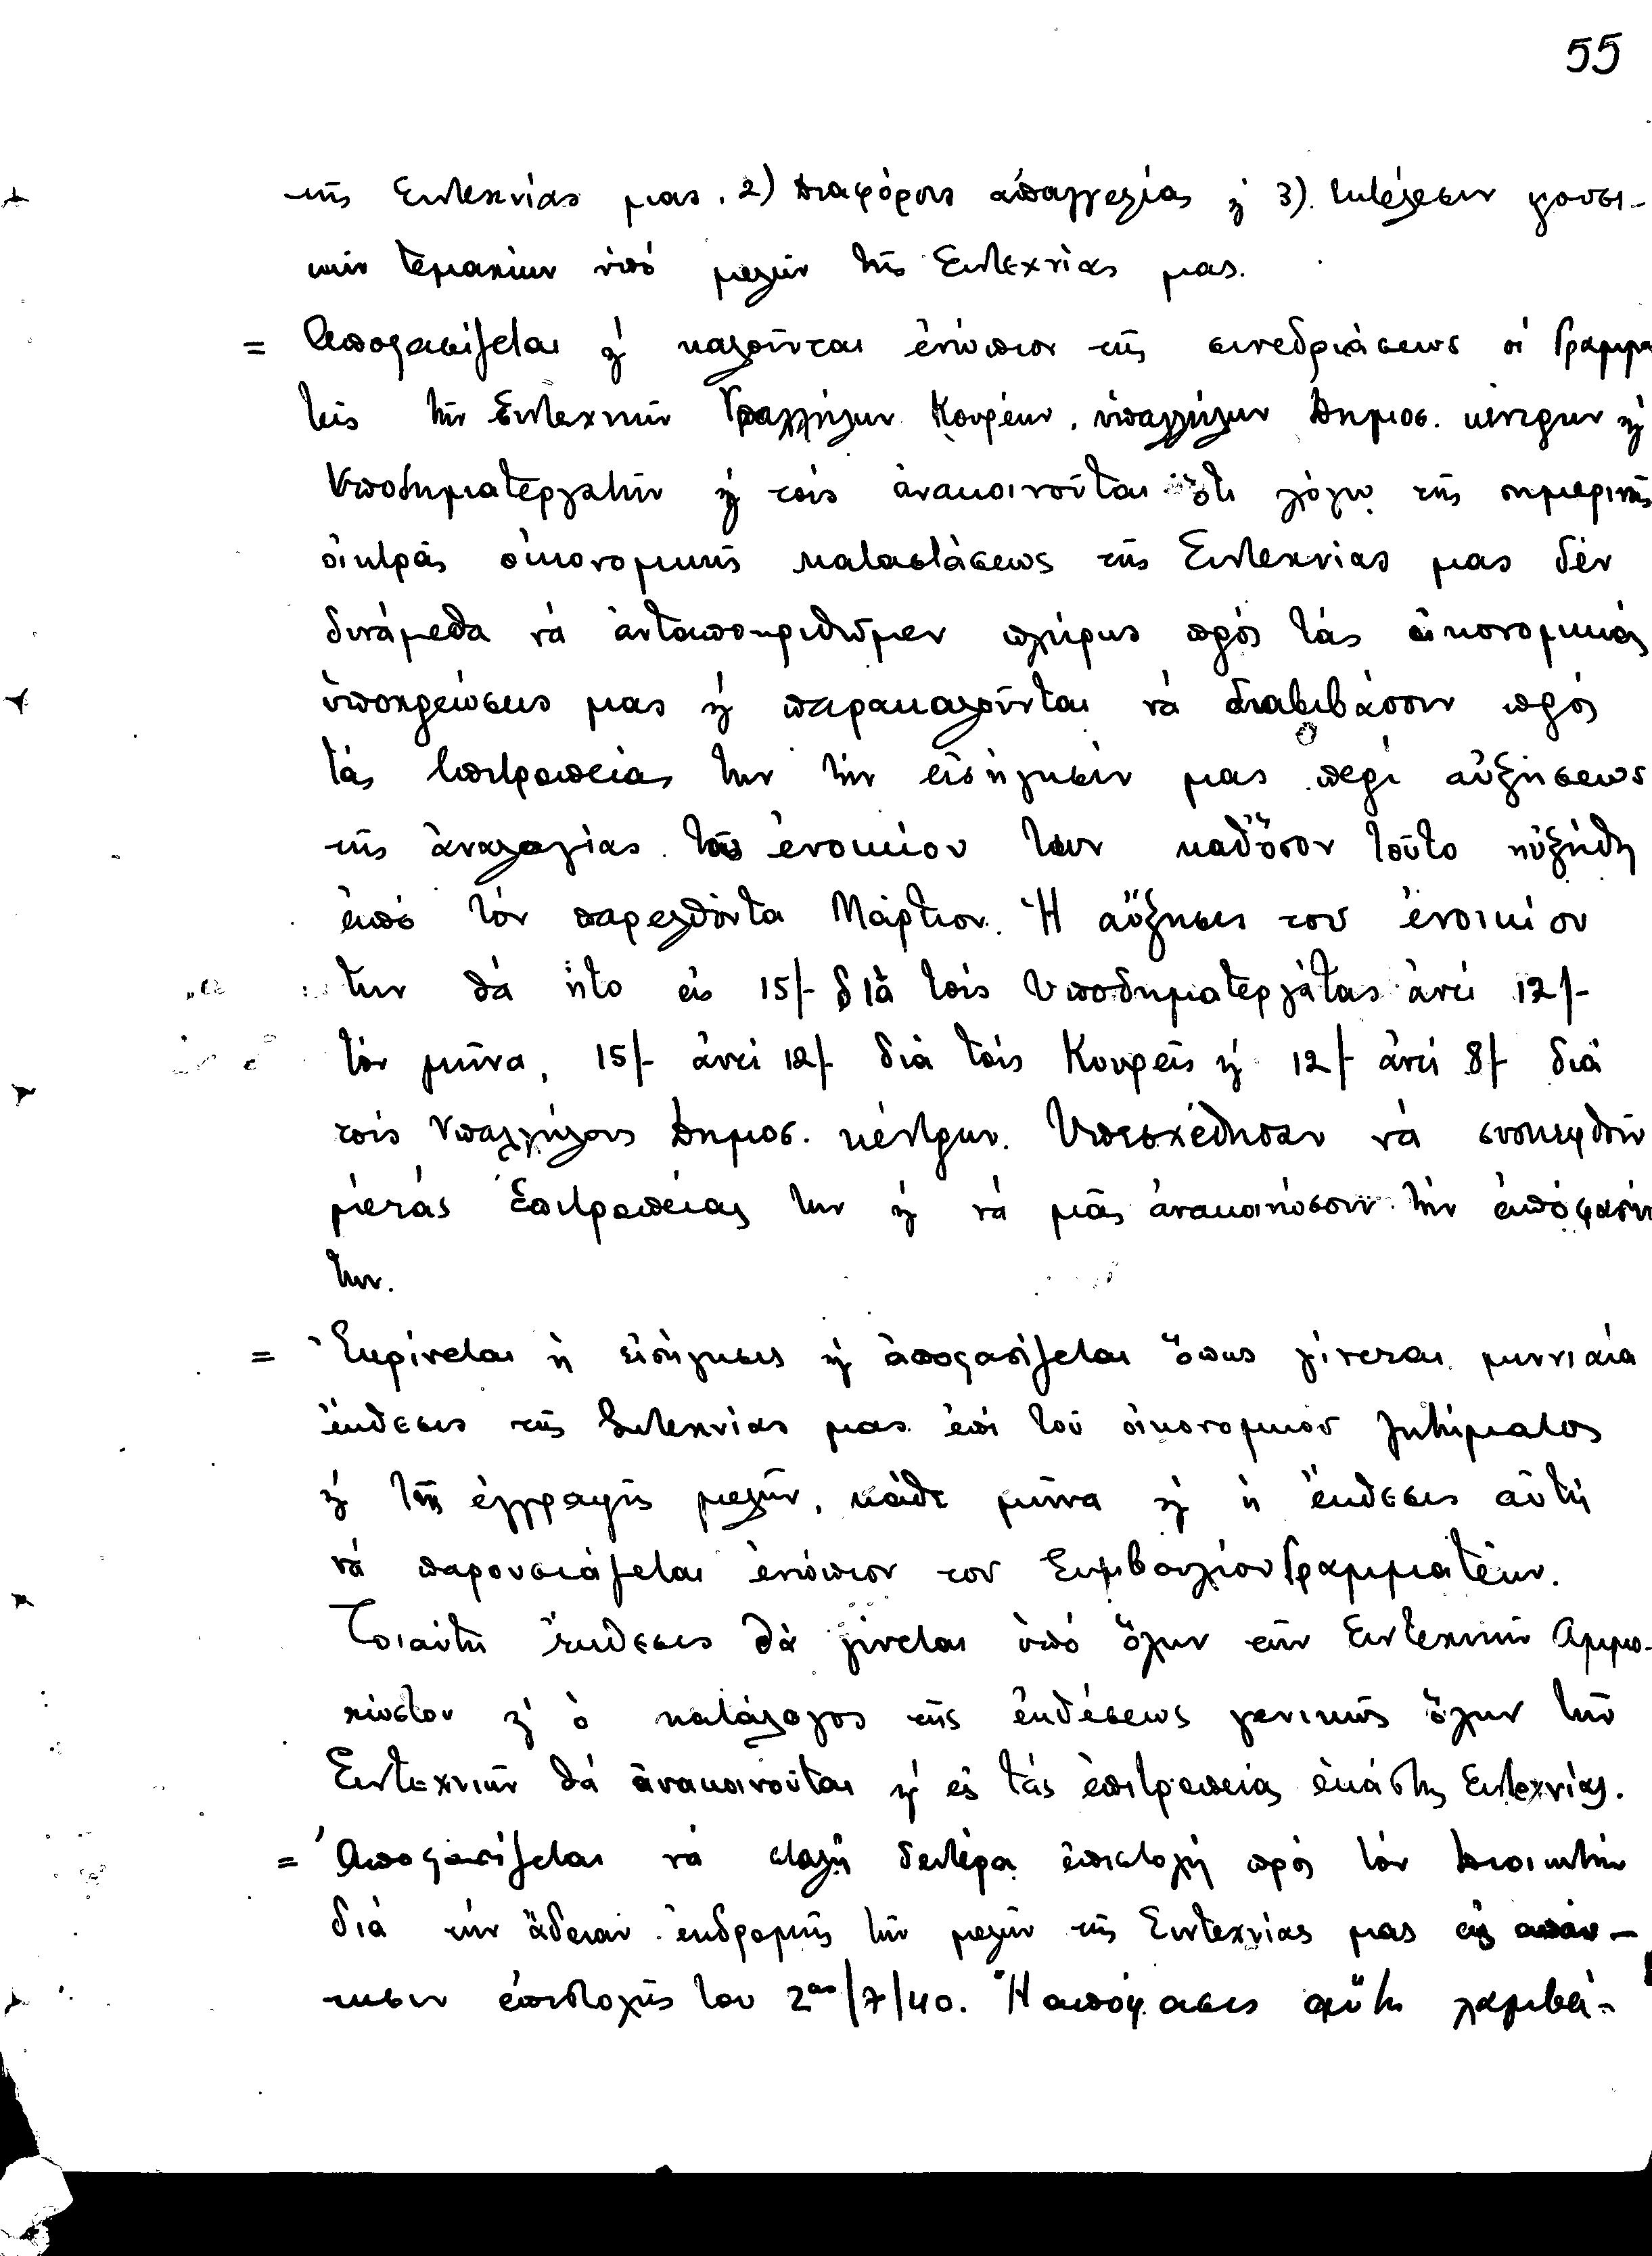 55
τῆς Συντεχνίας μας, 2) Διαφόρους ἀπαγγελίας ϗ 3). Ἐκτέλεσιν μουσι-
κῶν τεμαχίων ὑπό μελῶν τῆς Συντεχνίας μας.
= Ἀποφασίζεται ϗ καλοῦνται ἐνώπιον τῆς συνεδριάσεως οἱ Γραμμα
τεῖς τῶν Συντεχνιῶν Ὑπαλλήλων Κουρέων, ὑπαλλήλων Δημοσ. κέντρων ϗ
Ὑποδηματεργατῶν ϗ τούς ἀνακοινοῦται ὅτι λόγῳ τῆς σημερινῆς
οἰκτρᾶς οἰκονομικῆς καταστάσεως τῆς Συντεχνίας μας δέν
δυνάμεθα νά ἀνταποκριθῶμεν πλήρως πρός τάς οἰκονομικάς
ὑποχρεώσεις μας ϗ παρακαλοῦνται νά διαβιβάσουν πρός
τάς ἐπιτροπείας των τήν εἰσήγησίν μας περί αὐξήσεως
τῆς ἀναλογίας τοῦ ἐνοικίου των καθ' ὅσον τοῦτο ηὐξήθη
ἀπό τόν παρελθόντα Μάρτιον. Ἡ αὔξησις του ἐνοικίου
των θά ἦτο εἰς 15/- διὰ τούς Ὑποδηματεργάτας ἀντί 12/-
τόν μῆνα, 15/- ἀντί 12/- διά τούς Κουρεῖς ϗ 12/- ἀντί 8/- διά
τούς Ὑπαλλήλους Δημοσ. κέντρων. Ὑπεσχέθησαν νά συσκεφθοῦν
μετάς Ἐπιτροπείας των ϗ νά μᾶς ἀνακοινώσουν τήν ἀπόφασίν
των.
= Ἐγκρίνεται ἡ εἰσήγησις ϗ ἀποφασίζεται ὅπως γίνεται μηνιαία
ἔκθεσις τῆς Συντεχνίας μας ἐπί τοῦ οἰκονομικοῦ ζητήματος
ϗ τῆς ἐγγραφῆς μελῶν, κάθε μῆνα ϗ ἡ ἔκθεσις αὐτή
νά παρουσιάζεται ἐνώπιον του Συμβουλίου Γραμματέων.
Τοιαύτη ἔκθεσις θά γίνεται ὑπό ὅλων τῶν Συντεχνιῶν Ἀμμο-
χώστου ϗ ὁ κατάλογος τῆς ἐκθέσεως γενικῶς ὅλων τῶν
Συντεχνιῶν θά ἀνακοινοῦται ϗ εἰς τάς ἐπιτροπείας ἑκάστης Συντεχνίας.
= Ἀποφασίζεται νά σταλῇ δευτέρα ἐπιστολή πρός τόν Διοικητήν
διά τήν ἄδειαν ἐκδρομῆς τῶν μελῶν τῆς Συντεχνίας μας εἰς ἀπάν-
τησιν ἐπιστολῆς του 2ας/7/40. Ἡ ἀπόφασις αὕτη λαμβά-